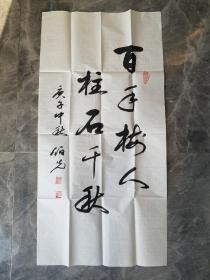 百年树人
柱石千秋
庚子中秋 伯光